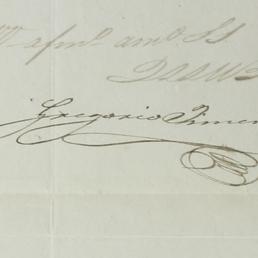 afmo amo SS
QSMB
Gregorio Jimen